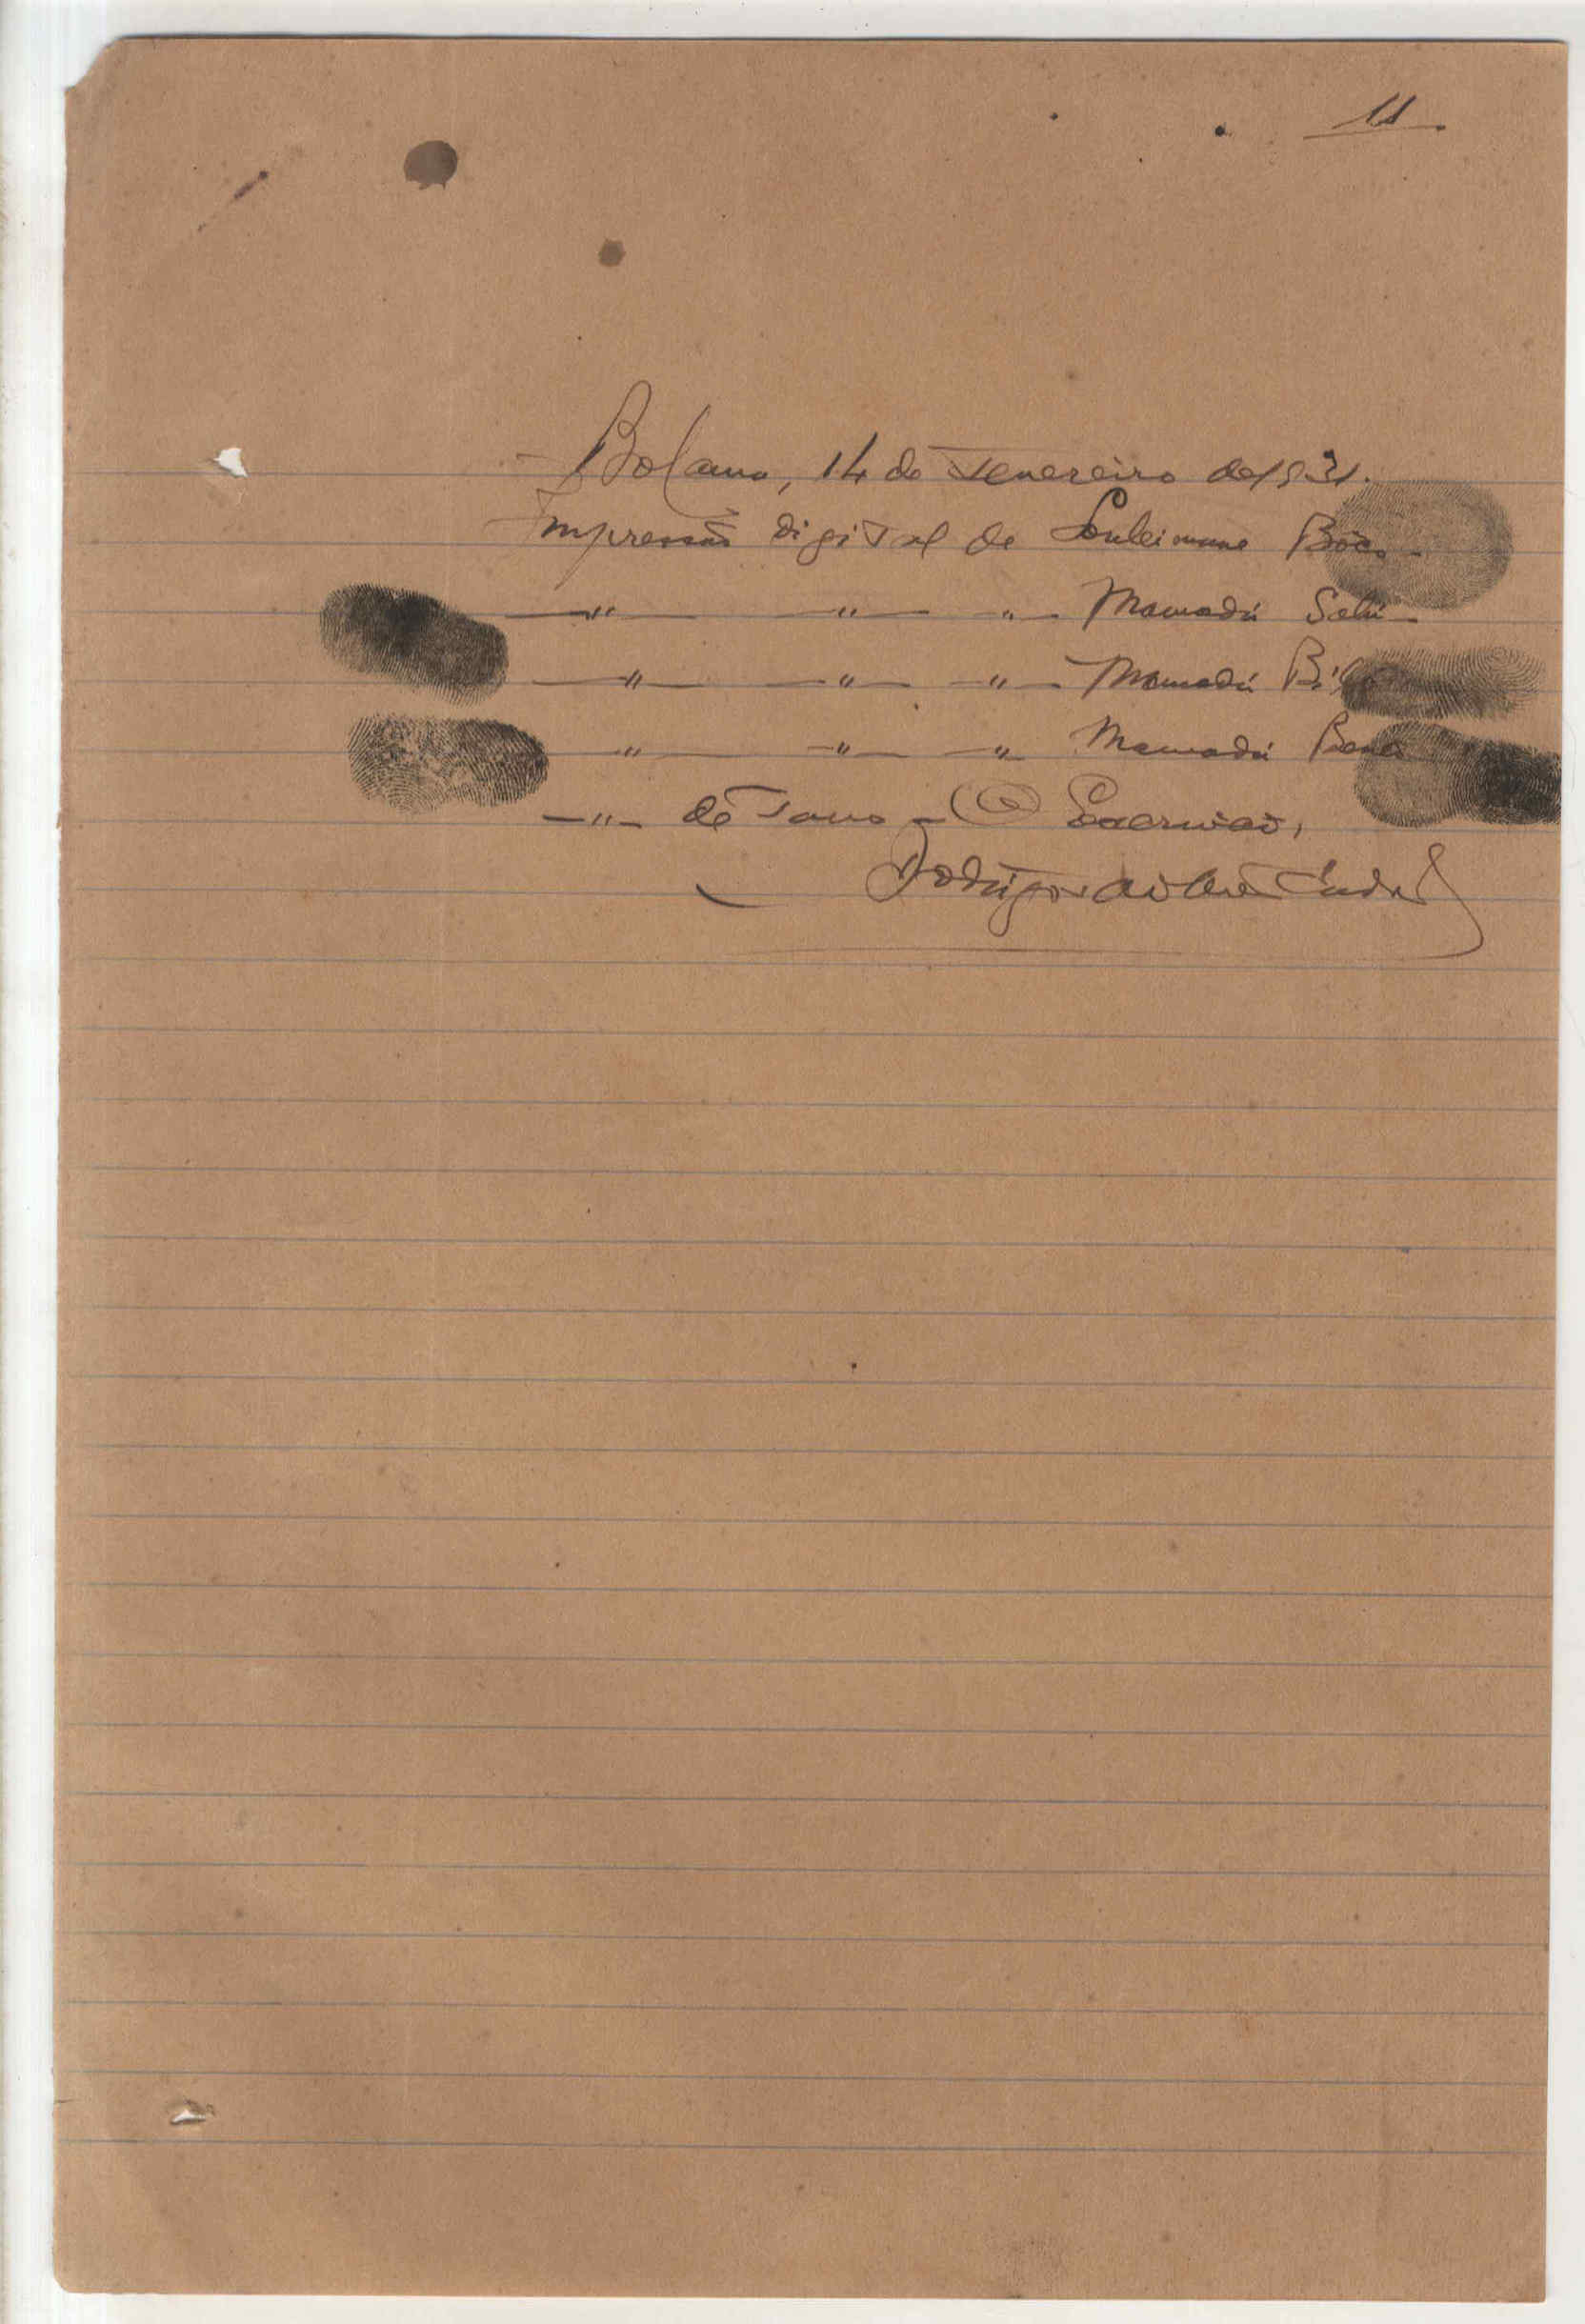 11
Bolama, 14 de Fevereiro de 1931.
Impressão digital de Souleimane Bóco
—"— —"— —"— Mamadú Salú
—"— —"— —"— Mamadú
—"— —"— —"— Mamadú
—"— de Tomo - O Escrivão,